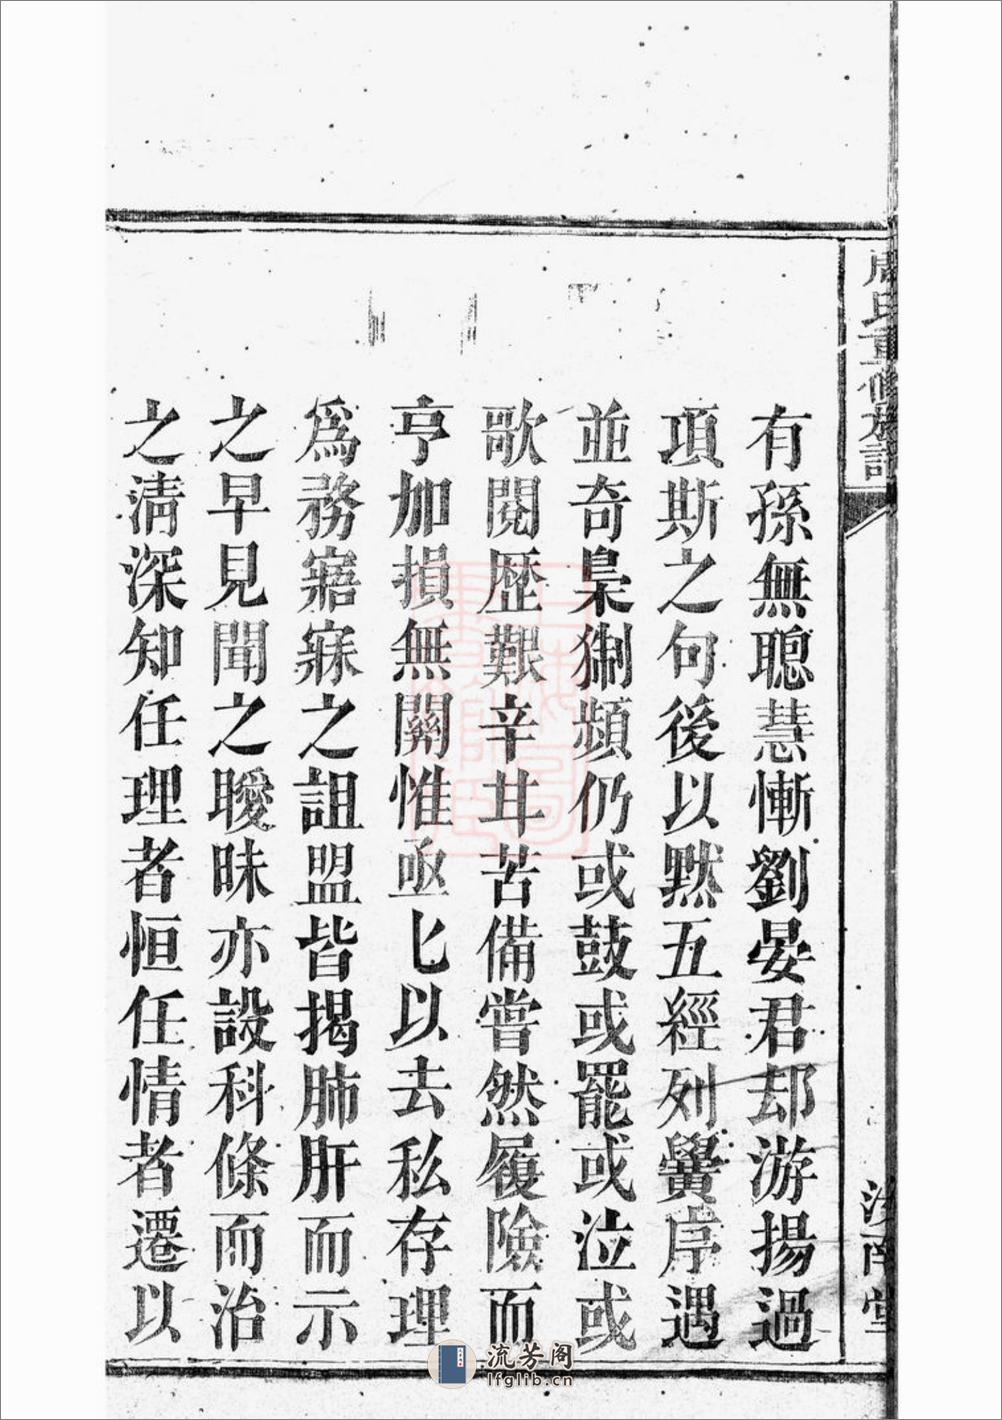 周氏重修族譜
汝南堂
有孫無聰慧慚劉晏君却游揚過
項斯之句後以默五經列黌序遇
並奇梟猘頻仍或鼓或罷或泣或
歌閱歷艱辛甘苦備嘗然履險而
亨加損無關惟亟匕以去私存理
爲務寤寐之詛盟皆揭肺肝而示
之早見聞之曖昧亦設科條而治
之淸深知任理者恒任情者遷以
流芳阁
lfglib.cn